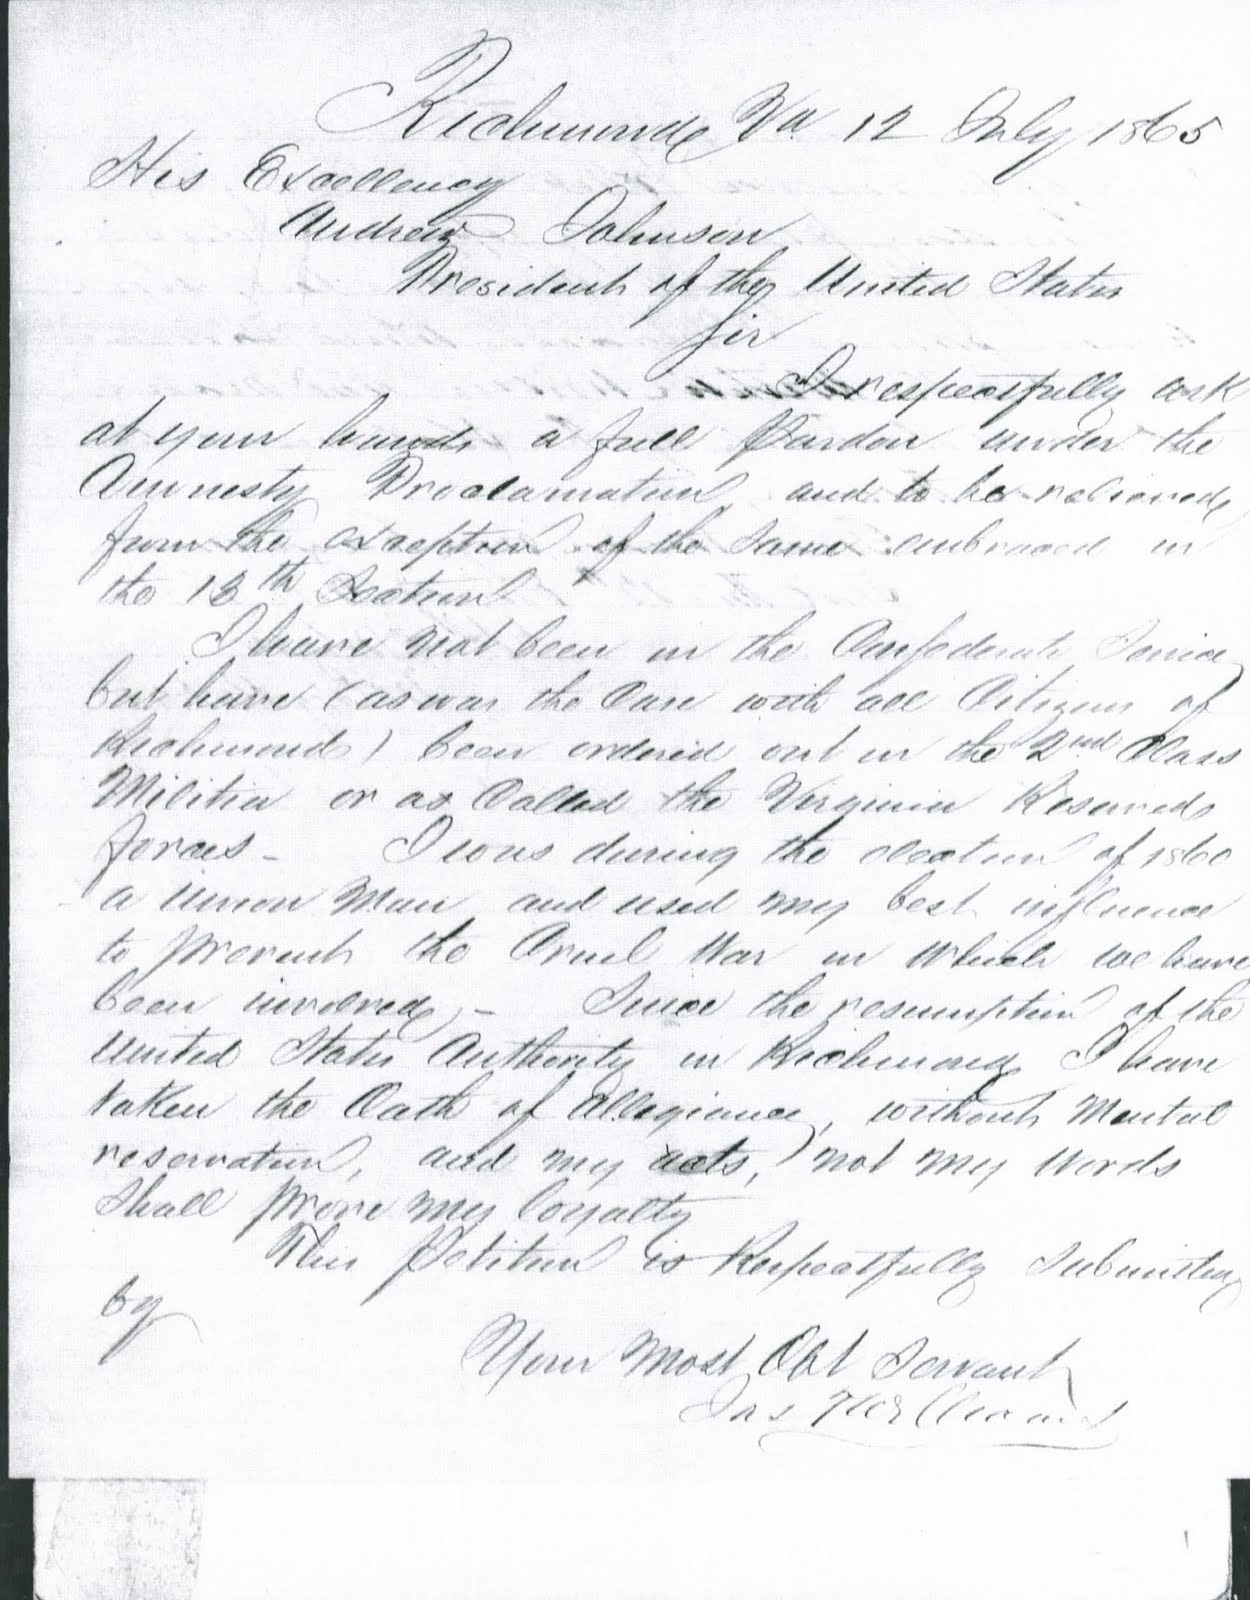 Richmond Va 12 July 1865
His Excellency
Andrew Johnson
President of the United States
Sir
I respectfully ask
at your hands a full Pardon under the
Amnesty Proclamation and to be relieved
from the exception of the same embraced in
the 13th Section
I have not been in the Confederate Service
but have (as was the Case with all Citizens of
Richmond) been ordered out in the 2nd Class
Militia or as Called the Virginia Reserved
forces - I was during the election of 1860
a Union Man and used my best influence
to prevent the Cruel War in which we have
been involved, - Since the resumption of the
United States Authority in Richmond I have
taken the Oath of Allegiance, without Mental
reservation, and my acts, not my words
Shall prove my loyalty
This Petition is Respectfully Submitted
by
Your Most Obt Servant
Jas